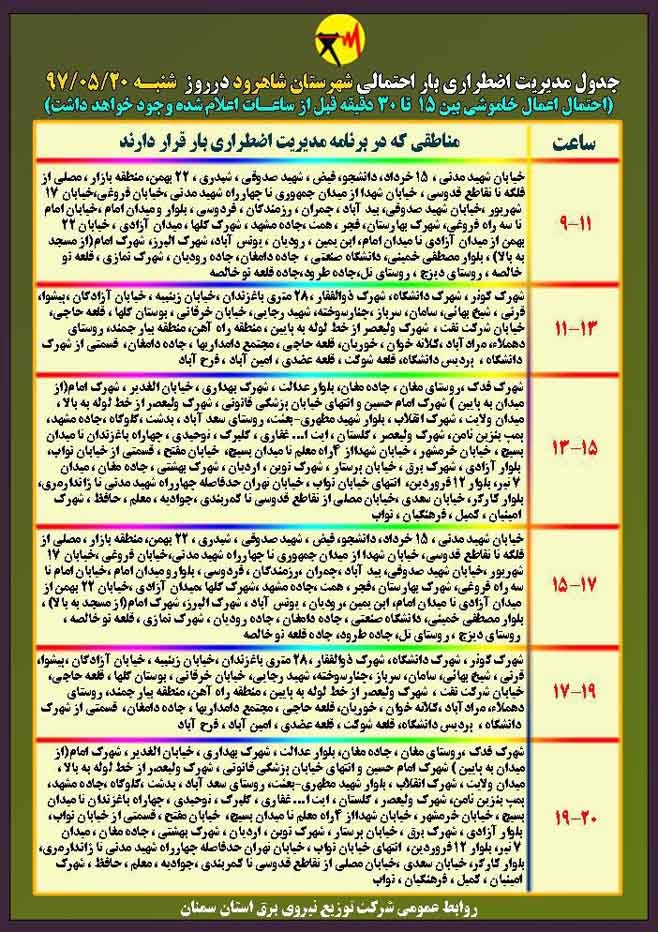 جدول مدیریت اضطراری بار احتمالی شهرستان شاهرود درروز شنبـه ۹۷/۰۵/۲۰
(احتمال اعمال خاموشی بین ۱۵ تا ۳۰ دقیقه قبل از ساعـات اعلام شده وجود خواهد داشت)
ساعت
مناطقی که در برنامه مدیریت اضطراری بار قرار دارند
۹-۱۱
خیابان شهید مدنی ، ۱۵ خرداد، دانشجو، فیض ، شهید صدوقی ، شیدری ، ۲۲ بهمن، منطقه بازار ، مصلی از
فلکه تا تقاطع قدوسی ، خیابان شهدا از میدان جمهوری تا چهارراه شهید مدنی ،خیابان فروغی،خیابان ۱۷
شهریور ،خیابان شهید صدوقی، بید آباد ، چمران ، رزمندگان ، فردوسی ، بلوار و میدان امام ،خیابان امام
تا سه راه فروغی، شهرک بهارستان، فجر ، همت ،جاده مشهد ، شهرک گلها ، میدان آزادی ، خیابان ۲۲
بهمن از میدان آزادی تا میدان امام، ابن یمین ، رودیان ، یونس آباد، شهرک البرز، شهرک امام(از مسجد
به بالا) ، بلوار مصطفی خمینی، دانشگاه صنعتی ، جاده دامغان، جاده رودیان ، شهرک نمازی ، قلعه نو
خالصه ، روستای دیزج ، روستای تل، جاده طرود،جاده قلعه نو خالصه
۱۱-۱۳
شهرک کوثر ، شهرک دانشگاه، شهرک ذوالفقار ، ۲۸ متری باغزندان ،خیابان زینبیه ، خیابان آزادگان ،پیشوا،
قرنی ، شیخ بهائی، سامان، سرباز ،چنارسوخته، شهید رجایی، خیابان خرقانی ، بوستان گلها ، قلعه حاجی،
خیابان شرکت نفت ، شهرک ولیعصر از خط لوله به پایین ، منطقه راه آهن، منطقه بیار جمند، روستای
دهملاء، مراد آباد ،کلاته خوان ، خوریان، قلعه حاجی ، مجتمع دامداریها ، جاده دامغان، قسمتی از شهرک
دانشگاه ، پردیس دانشگاه، قلعه شوکت ، قلعه عضدی ، امین آباد ، فرح آباد
۱۳-۱۵
شهرک فدک ،روستای مغان ، جاده مغان، بلوار عدالت ، شهرک بهداری ، خیابان الغدیر ، شهرک امام(از
میدان به پایین ) شهرک امام حسین و انتهای خیابان پزشکی قانونی ، شهرک ولیعصر از خط لوله به بالا ،
میدان ولایت ، شهرک انقلاب ، بلوار شهید مطهری-بعثت، روستای سعد آباد ، بدشت ،کلوکاه ،جاده مشهد،
پمپ بنزین ثامن، شهرک ولیعصر ، گلستان ، آیت ا... غفاری ، گلبرگ ، توحیدی ، چهارراه باغزندان تا میدان
بسیج ، خیابان خرمشهر ، خیابان شهدااز ۴راه معلم تا میدان بسیج، خیابان مفتح ، قسمتی از خیابان نواب،
بلوار آزادی ، شهرک برق ، خیابان پرستار ، شهرک نوین ، اردیان ، شهرک بهشتی ، جاده مغان ، میدان
۷ تیر، بلوار ۱۲ فروردین، انتهای خیابان نواب ، خیابان تهران حدفاصله چهارراه شهید مدنی تا ژاندارمری،
بلوار کارگر، خیابان سعدی ،خیابان مصلی از تقاطع قدوسی تا کمربندی ،جوادیه ، معلم ، حافظ ، شهرک
امینیان ، کمیل ، فرهنگیان ، نواب
۱۵-۱۷
خیابان شهید مدنی ، ۱۵ خرداد، دانشجو، فیض ، شهید صدوقی ، شیدری ، ۲۲ بهمن، منطقه بازار ، مصلی از
فلکه تا تقاطع قدوسی، خیابان شهدا از میدان جمهوری تا چهارراه شهید مدنی،خیابان فروغی،خیابان ۱۷
شهریور ،خیابان شهید صدوقی، بید آباد ،چمران ، رزمندگان ، فردوسی ، بلوارو میدان امام، خیابان امام تا
سه راه فروغی، شهرک بهارستان ،فجر ، همت ،جاده مشهد ،شهرک گلها ،میدان آزادی ،خیابان ۲۲ بهمن از
میدان آزادی تا میدان امام، ابن یمین ، رودیان ، یونس آباد ، شهرک البرز ، شهرک امام(از مسجد به بالا) ،
بلوار مصطفی خمینی، دانشگاه صنعتی ، جاده دامغان ، جاده رودیان ، شهرک نمازی ، قلعه نو خالصه ،
روستای دیزج ، روستای تل، جاده طرود، جاده قلعه نو خالصه
۱۷-۱۹
شهرک کوثر ، شهرک دانشگاه، شهرک ذوالفقار ، ۲۸ متری باغزندان ،خیابان زینبیه ، خیابان آزادگان ،پیشوا،
قرنی ، شیخ بهائی، سامان، سرباز ،چنارسوخته، شهید رجایی، خیابان خرقانی ، بوستان گلها ، قلعه حاجی،
خیابان شرکت نفت ، شهرک ولیعصر از خط لوله به پایین ، منطقه راه آهن، منطقه بیار جمند، روستای
دهملاء، مراد آباد ،کلاته خوان ، خوریان، قلعه حاجی ، مجتمع دامداریها ، جاده دامغان، قسمتی از شهرک
دانشگاه ، پردیس دانشگاه، قلعه شوکت ، قلعه عضدی ، امین آباد ، فرح آباد
۱۹-۲۰
شهرک فدک ،روستای مغان ، جاده مغان، بلوار عدالت ، شهرک بهداری ، خیابان الغدیر ، شهرک امام(از
میدان به پایین ) شهرک امام حسین و انتهای خیابان پزشکی قانونی ، شهرک ولیعصر از خط لوله به بالا ،
میدان ولایت ، شهرک انقلاب ، بلوار شهید مطهری-بعثت، روستای سعد آباد ، بدشت ،کلوکاه ،جاده مشهد،
پمپ بنزین ثامن، شهرک ولیعصر ، گلستان ، آیت ا... غفاری ، گلبرگ ، توحیدی ، چهارراه باغزندان تا میدان
بسیج ، خیابان خرمشهر ، خیابان شهدااز ۴راه معلم تا میدان بسیج، خیابان مفتح ، قسمتی از خیابان نواب،
بلوار آزادی ، شهرک برق ، خیابان پرستار ، شهرک نوین ، اردیان ، شهرک بهشتی ، جاده مغان ، میدان
۷ تیر، بلوار ۱۲ فروردین، انتهای خیابان نواب ، خیابان تهران حدفاصله چهارراه شهید مدنی تا ژاندارمری،
بلوار کارگر، خیابان سعدی ،خیابان مصلی از تقاطع قدوسی تا کمربندی ،جوادیه ، معلم ، حافظ ، شهرک
امینیان ، کمیل ، فرهنگیان ، نواب
روابط عمومی شرکت توزیع نیروی برق استان سمنان